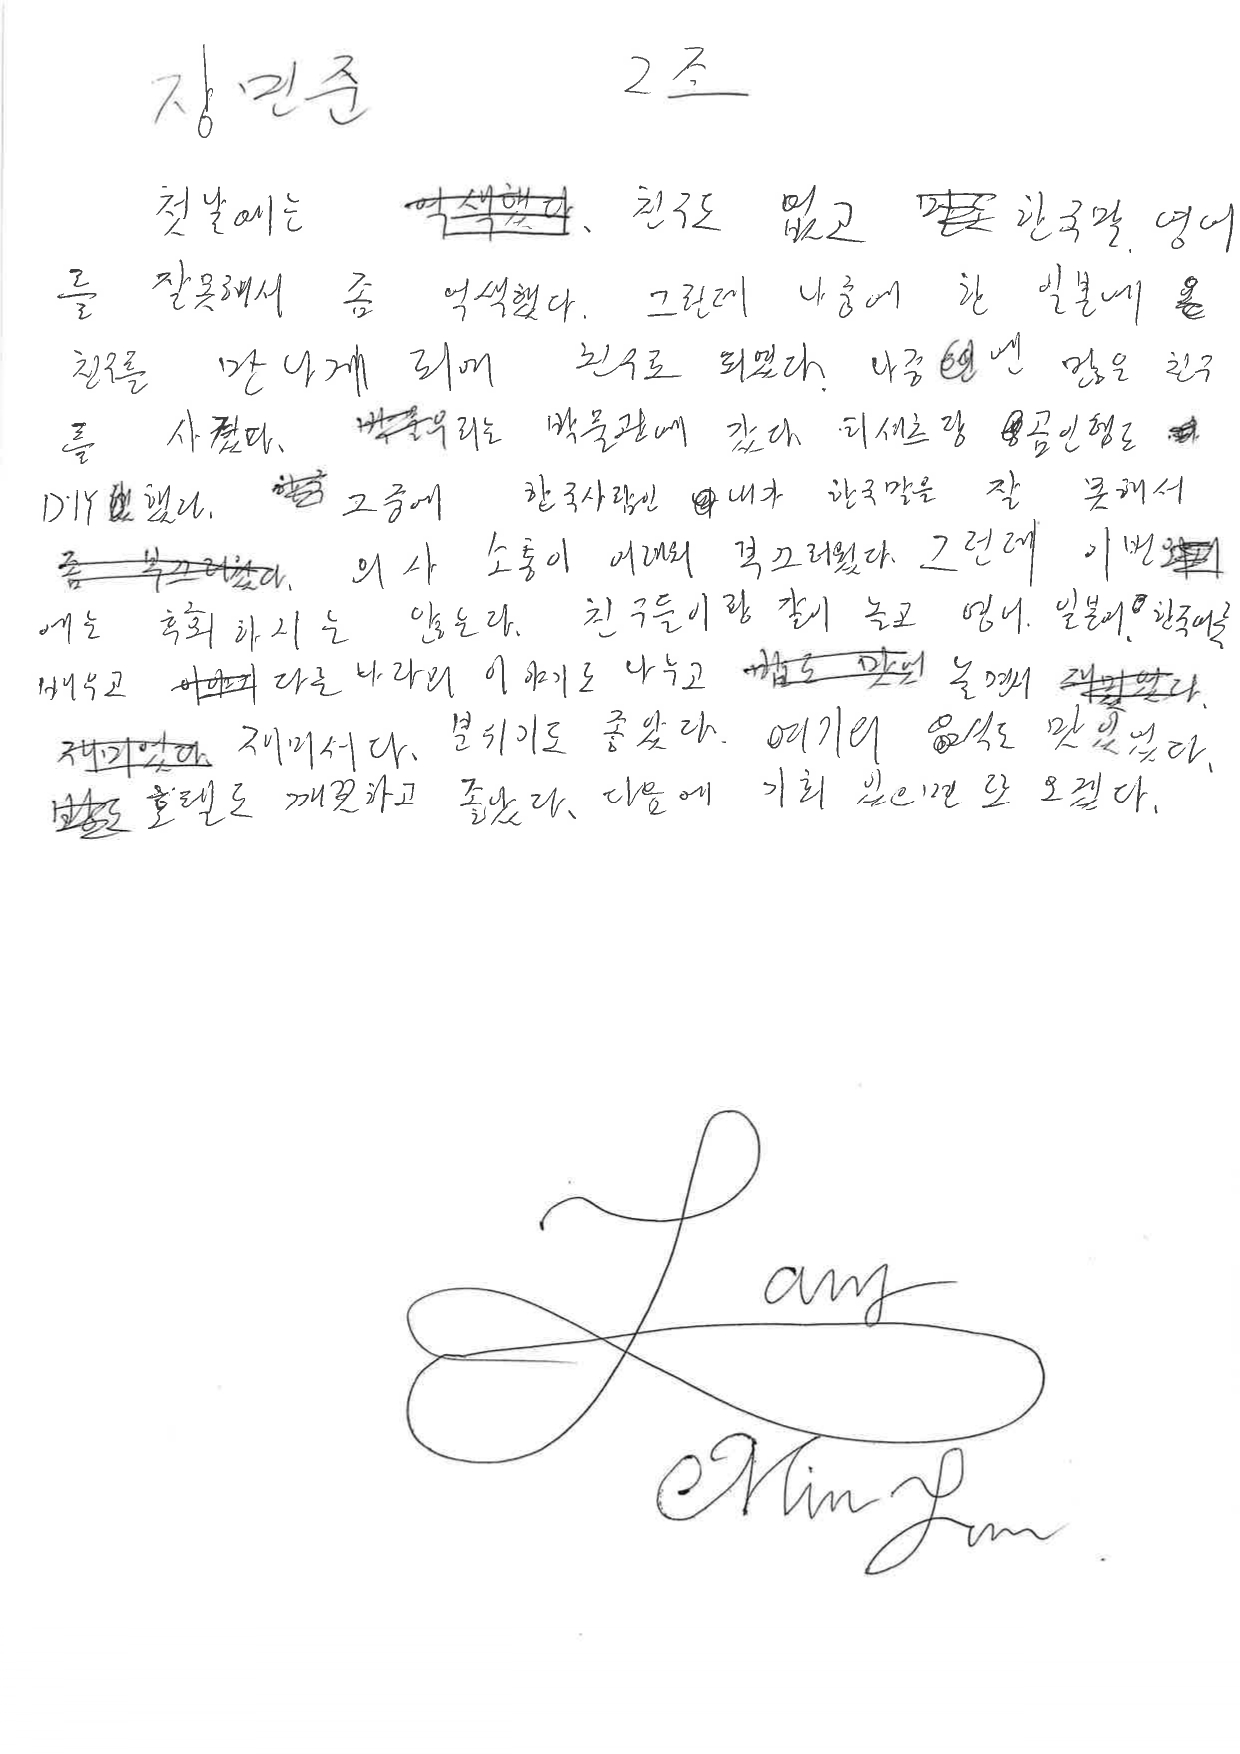 장민준 2조
첫날에는 억색했다. 친구도 없고 한국말, 영어
를 잘못해서 좀 억색했다. 그런데 나중에 한 일본에
친구를 만나게 되에 친구로 되었다. 나중엔 많은 친구
를 사귔다. 우리는 박물관에 갔다. 티셔츠랑 곰인형도
DIY 했다. 그중에 한국사람인 내가 한국말을 잘 못해서
좀 부끄러웠다. 의사 소통이 어려워 부끄러웠다. 그런데 이번
에는 후회하지는 않는다. 친구들이랑 같이 놀고 영어. 일본어. 한국어를
배우고 다른 나라의 이야기도 나누고 놀면서 재미있았다.
재미있었다. 재미서다. 분위기도 좋았다. 여기의 음식도 맛있었다.
호텔도 깨끗하고 좋았다. 다음에 기회 있으면 또 오겠다.
Jang
Min Jun